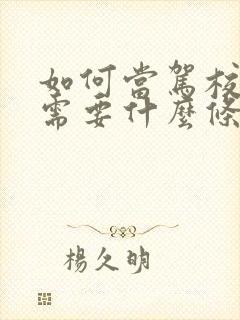 如何當駕校
需要什麼條
楊久明